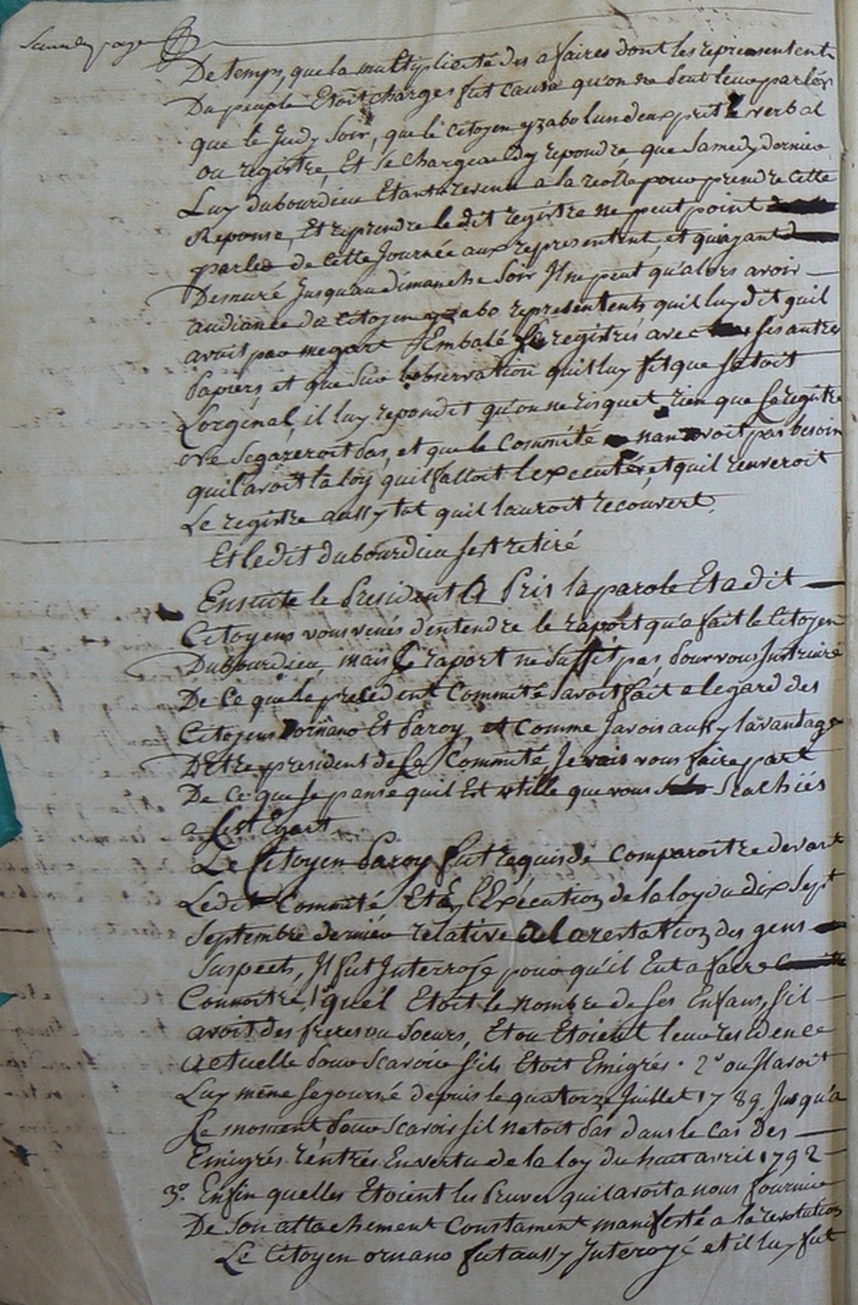 De temps, que la multiplicité des afaires dont les representents
Du peuple Etoit charges fut cause qu'on ne peut leur parlér
que le Judy Soir, que le citoyen yzabo lun deux prit le verbal
ou registre, Et se chargea dy repondre que Samedy dernier
Luy dubourdieu Etant revenu a la reolle pour prendre Cette
Reponse, Et reprendre le dit registre ne peut point
parler de cette Journée aux representent, et quiayant
Demuré Jusquau dimanche Soir Jl ne peut qu'alors avoir
audiance du Citoyen yzabo representents quil luy dit quil
avoit par megart Embalé le registres avec ses autres
Papiers, et que sur lobservation quil luy fit que setoit
Lorginal, il luy repondit qu'on ne risquet rien que Se registre
Ne Segareroit pas, et que le Committé nan avoit pas besoin
quil avoit la loy quil falloit lexecuter, et quil renveroit
Le registre aussy tot quil lauroit recouvert,
Et ledit dubourdieu sest retiré
Ensuite le President A Pris la parole Et a dit
Citoyens vous venés dentendre le raport qu'a fait le Citoyen
Dubourdieu, mais Ce raport ne Suffit pas pour vous Justruire
De Ce que le precedent Committé avoit fait a legard des
Citoyens Dornano Et Paroy, et Comme Javois aussy lavandage
D'Etre president de Ce Committé Je vais vous faire part
De Ce que Je panse quil Est utille que vous Scachiés
a Cest Egart.
Le Citoyen Paroy fut requis de Comparoitre devant
Ledit Committé Et En l'Exécution de la loy du dix Sept
Septembre dernier relative de larestation des gens
Suspects, Jl fut Jnterrogé pour qu'il Eut a faire
Connoitre, 1° quel Etoit le nombre de Ses Enfans, Sil
avoit des freres ou Soeurs, Et ou Etoient leur residence
actuelle pour Scavoir sils Etoit Emigrés. 2° ou Jl avoit
Luy même Segourné depuis le quatorze Juillet 1789 Jusqu'a
Le moment pour Scavoir Sil netoit pas dans le Cas des
Emigrés rentrés En vertu de la loy du huit avril 1792
3° Enfin quelles Etoient les Pruves quil avoit a nous fournir
De Son attachement Constament manifesté a la revolution
Le Citoyen ornano fut aussy Jnterogé et il luy fut